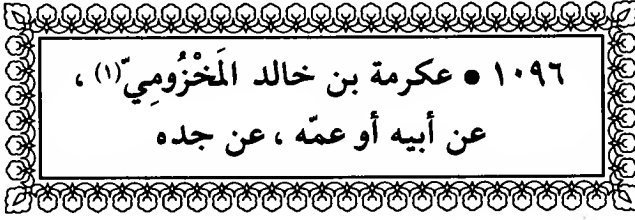 ١٠٩٦ • عكرمة بن خالد المَخْزُومِيّ(١) ،
عن أبيه أو عمّه ، عن جده